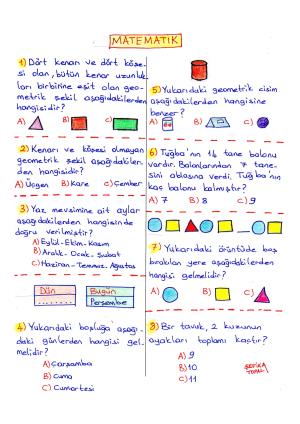 MATEMATİK
1) Dört kenarı ve dört köşe-
si olan, bütün kenar uzunluk-
ları birbirine eşit olan geo-
metrik şekil aşağıdakilerden
hangisidir?
A) B) C)
2) Kenarı ve köşesi olmayan
geometrik şekil aşağıdakiler-
den hangisidir?
A) Üçgen B) Kare C) Çember
3) Yaz mevsimine ait aylar
aşağıdakilerden hangisinde
doğru verilmiştir?
A) Eylül-Ekim-Kasım
B) Aralık-Ocak-Şubat
C) Haziran-Temmuz-Ağustos
Dün Bugün
Perşembe
4) Yukarıdaki boşluğa aşağı-
daki günlerden hangisi gel-
melidir?
A) Çarşamba
B) Cuma
C) Cumartesi
5) Yukarıdaki geometrik cisim
aşağıdakilerden hangisine
benzer?
A) B) C)
6) Tuğba'nın 14 tane balonu
vardır. Balonlarından 7 tane-
sini ablasına verdi. Tuğba'nın
kaç balonu kalmıştır?
A) 7 B) 8 C) 9
7) Yukarıdaki örüntüde boş
bırakılan yere aşağıdakilerden
hangisi gelmelidir?
A) B) C)
8) Bir tavuk, 2 kuzunun
ayakları toplamı kaçtır?
A) 9
B) 10
C) 11